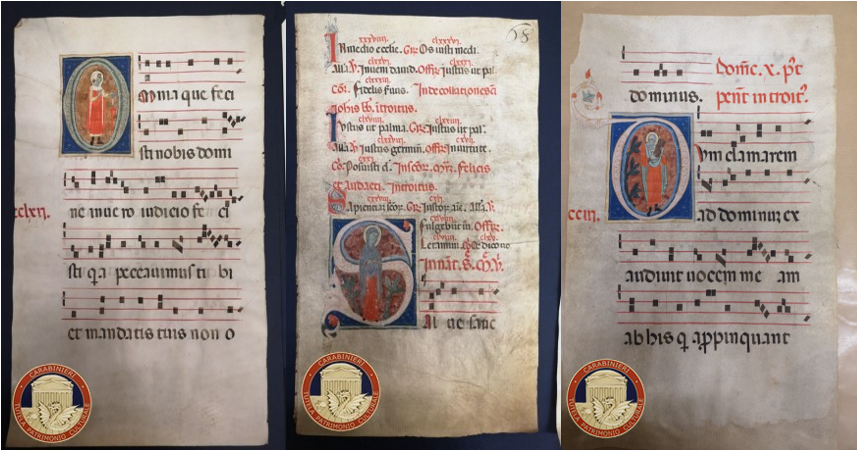 omnia que feci
sti nobis domi
cclxii.
ne in ue ro iudicio fe ci
sti q a peccauimus ti bi
et mandatis tuis non o
CARABINIERI
TUTELA PATRIMONIO CULTURALE
In medio ecclie. Gr. Os iusti medi.
Alla. Inueni dauid. Offr. Iustus ut pal
Co. Fidelis In decollatione
iohis introitus.
Iustus ut palma. Gr. Iustus ut pal.
Alla. Iustus germin. Offr. In uirtute.
Co. Posuisti d. In scor. felicis
et Audacti. Introitus.
Sapientia scor. Gr. Iustor aie. Alla.
fulgebunt Offr.
Letamini. Co. Dico uo
In nat. S.
Sal ue sanc
CARABINIERI
TUTELA PATRIMONIO CULTURALE
dominus. Domc. x. pt
pent introit.
Dum clamarem
cciii. ad dominum ex
audiuit uocem me am
ab his q appinquant
CARABINIERI
TUTELA PATRIMONIO CULTURALE